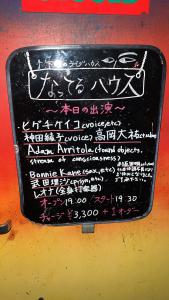 なってるハウス
～本日の出演～
ヒグチケイコ(voice,etc)
神田綾子(voice) 高岡大祐(tuba)
Adam Arritola (found objects,
stream of consciousness)
Bonnie Kane (sax, etc)
武田理沙
レオナ
オープン 19:00 スタート 19:30
チャージ ¥3,300 +1オーダー